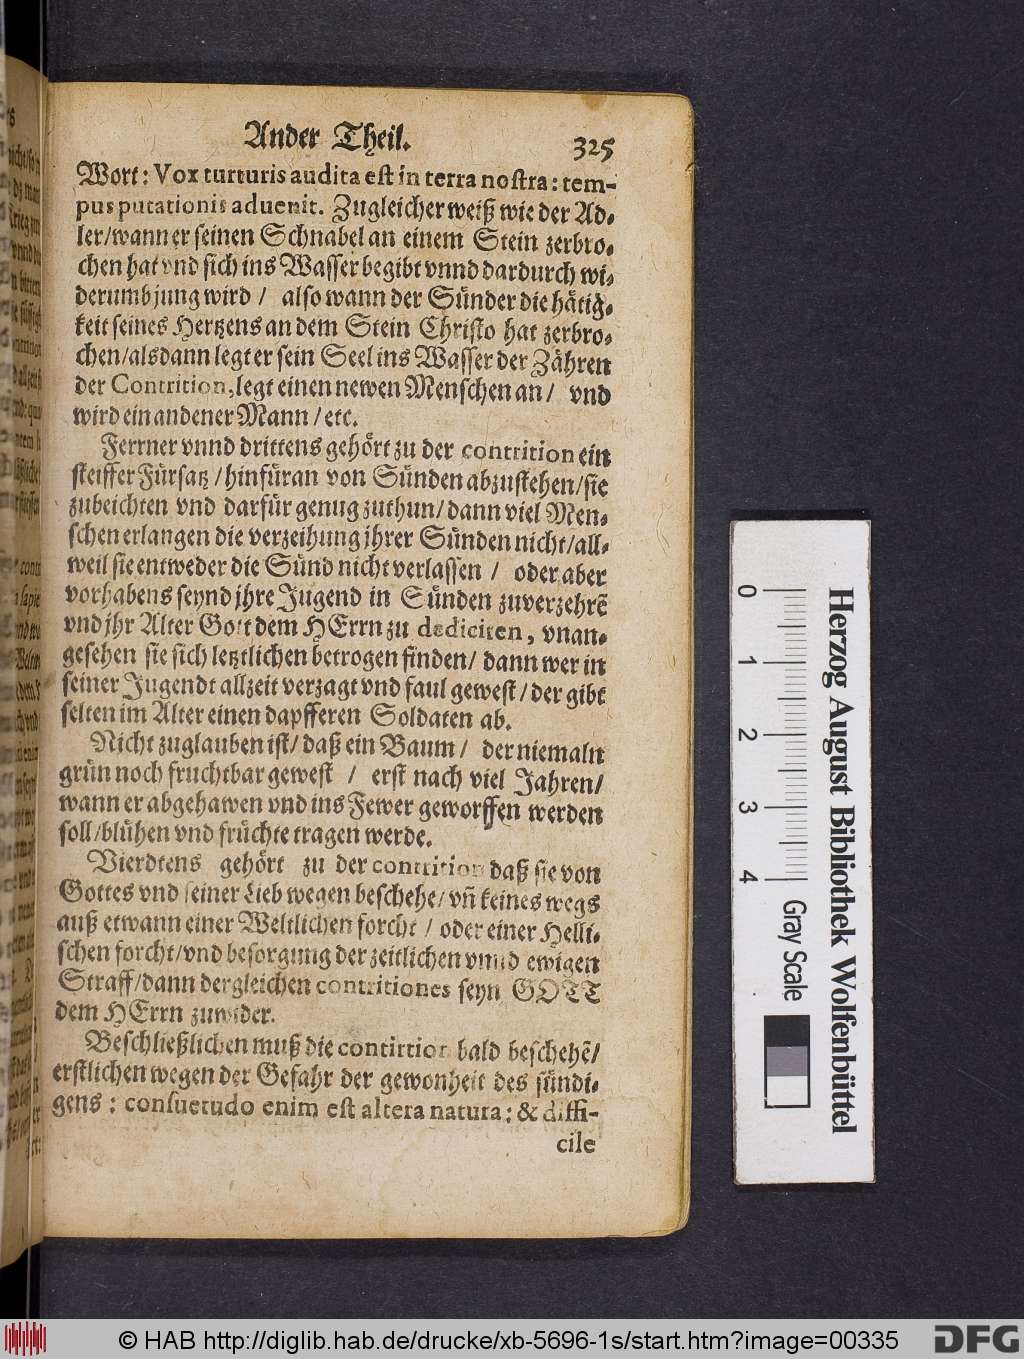 Ander Theil. 325
Wort: Vox turturis audita est in terra nostra: tem-
pus putationis aduenit. Zugleicher weiß wie der Ad-
ler/wann er seinen Schnabel an einem Stein zerbro-
chen hat vnd sich ins Wasser begibt vnnd dardurch wi-
derumb jung wird / also wann der Sünder die hätig-
keit seines Hertzens an dem Stein Christo hat zerbro-
chen/alsdann legt er sein Seel ins Wasser der Zähren
der Contrition, legt einen newen Menschen an / vnd
wird ein andener Mann / etc.
Ferrner vnnd drittens gehört zu der contrition ein
steiffer Fürsatz / hinfüran von Sünden abzustehen/sie
zubeichten vnd darfür genug zuthun/ dann viel Men-
schen erlangen die verzeihung jhrer Sünden nicht/all-
weil sie entweder die Sünd nicht verlassen / oder aber
vorhabens seynd jhre Jugend in Sünden zuverzehrē
vnd jhr Alter Gott dem HErrn zu dediciren, vnan-
gesehen sie sich letztlichen betrogen finden/ dann wer in
seiner Jugendt allzeit verzagt vnd faul gewest / der gibt
selten im Alter einen dapfferen Soldaten ab.
Nicht zuglauben ist/ daß ein Baum / der niemaln
grün noch fruchtbar gewest / erst nach viel Jahren/
wann er abgehawen vnd ins Fewer geworffen werden
soll/blühen vnd früchte tragen werde.
Vierdtens gehört zu der contrition daß sie von
Gottes vnd seiner Lieb wegen beschehe/ vñ keines wegs
auß etwann einer Weltlichen forcht / oder einer Helli-
schen forcht/vnd besorgung der zeitlichen vnnd ewigen
Straff/dann dergleichen contritiones seyn GOTT
dem HErrn zuwider.
Beschließlichen muß die contirtion bald beschehē/
erstlichen wegen der Gefahr der gewonheit des sündi-
gens : consuetudo enim est altera natura: & diffi-
cile
0 1 2 3 4
Gray Scale
Herzog August Bibliothek Wolfenbüttel
© HAB http://diglib.hab.de/drucke/xb-5696-1s/start.htm?image=00335
DFG